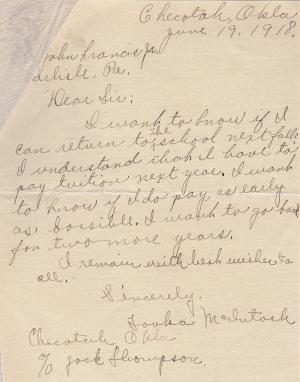 Checotah, Okla
June 19, 1918.
John Francis Jr.
Carlisle, Pa.
Dear Sir:
I want to know if I
can return to the school next fall.
I understand that I have to
pay tuition next year. I want
to know if I do pay as early
as possible. I want to go back
for two more years.
I remain with best wishes to
all.
Sincerely.
Tooka McIntosh
Checotah Okla.
c/o Jock Thompson.